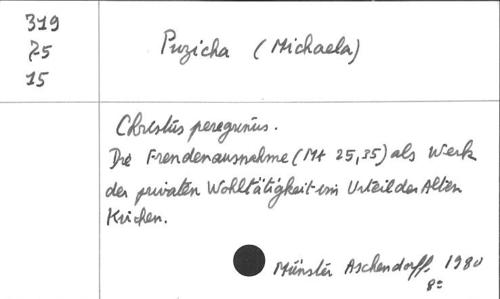 319
75
15
Puzicha (Michaela)
Christus peregrinus.
Die Fremdenaufnahme (Mt 25,35) als Werk
der privaten Wohltätigkeit im Urteil der Alten
Kirchen.
Münster Aschendorff. 1980
8º